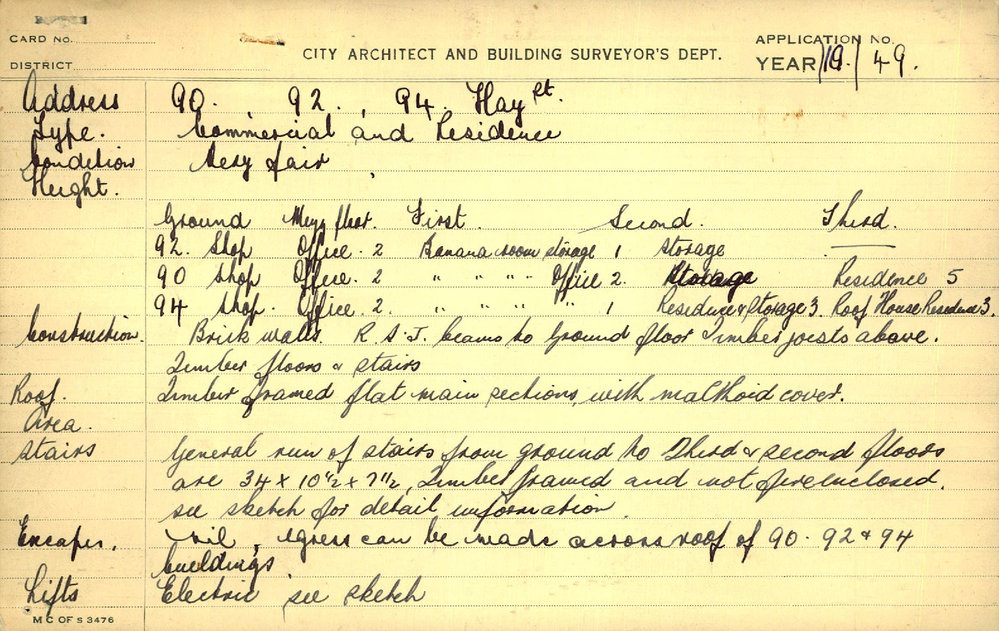 CARD NO.
DISTRICT
CITY ARCHITECT AND BUILDING SURVEYOR'S DEPT.
APPLICATION NO.
YEAR 19/49.
Address 90. 92. 94. Hay St.
Type. Commercial and Residence
Condition Very fair
Height.
Ground Mezz floor. First. Second. Third.
92. Shop Office. 2 Banana room storage 1 Storage
90 Shop Office. 2 " " " " Office 2. Storage Residence 5
94 Shop. Office. 2. " " " " 1 Residence & Storage 3. Roof House Residence 3.
Construction. Brick walls. R.S.J. beams to Ground floor Timber joists above.
Timber floors & stairs
Roof. Timber framed flat main sections, with malthoid cover.
Area.
Stairs General run of stairs from ground to Third & second floors
are 34 x 10½ x 7½, Timber framed and not fire enclosed.
see sketch for detail information.
Escapes. nil, egress can be made across roof of 90. 92 & 94
buildings
Lifts Electric see sketch
M C OF S 3476